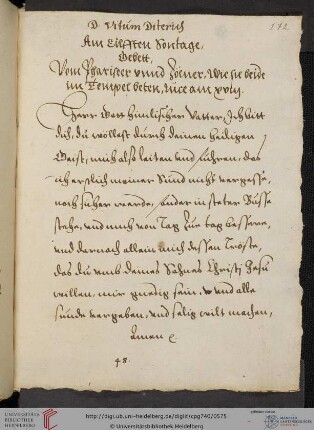 D. Vitum Diterich
142
Am Eilfften Sontage,
Gebett,
Vom Phariseer vnnd Zölner, Wie sie beide
im Tempel beten, Luce am xviij
Herr Gott himlischer Vatter, Ich bitt
dich, du wöllest durch deinen heiligen
Geist, mich also leiten vnd führen, das
ich erstlich meiner Sünd nicht vergesse,
noch sicher werde, sonder in steter Busse
stehe, vnd mich von tag zu tag bessere,
vnd darnach allein mich dessen tröste,
das du vmb deines Sohnes Christi Jesu
willen, mir gnedig sein, vnd alle
sünde vergeben, vnd selig wilt machen,
Amen
48
UNIVERSITÄTS-
BIBLIOTHEK
HEIDELBERG
http://digi.ub.uni-heidelberg.de/diglit/cpg740/0575
Universitätsbibliothek Heidelberg